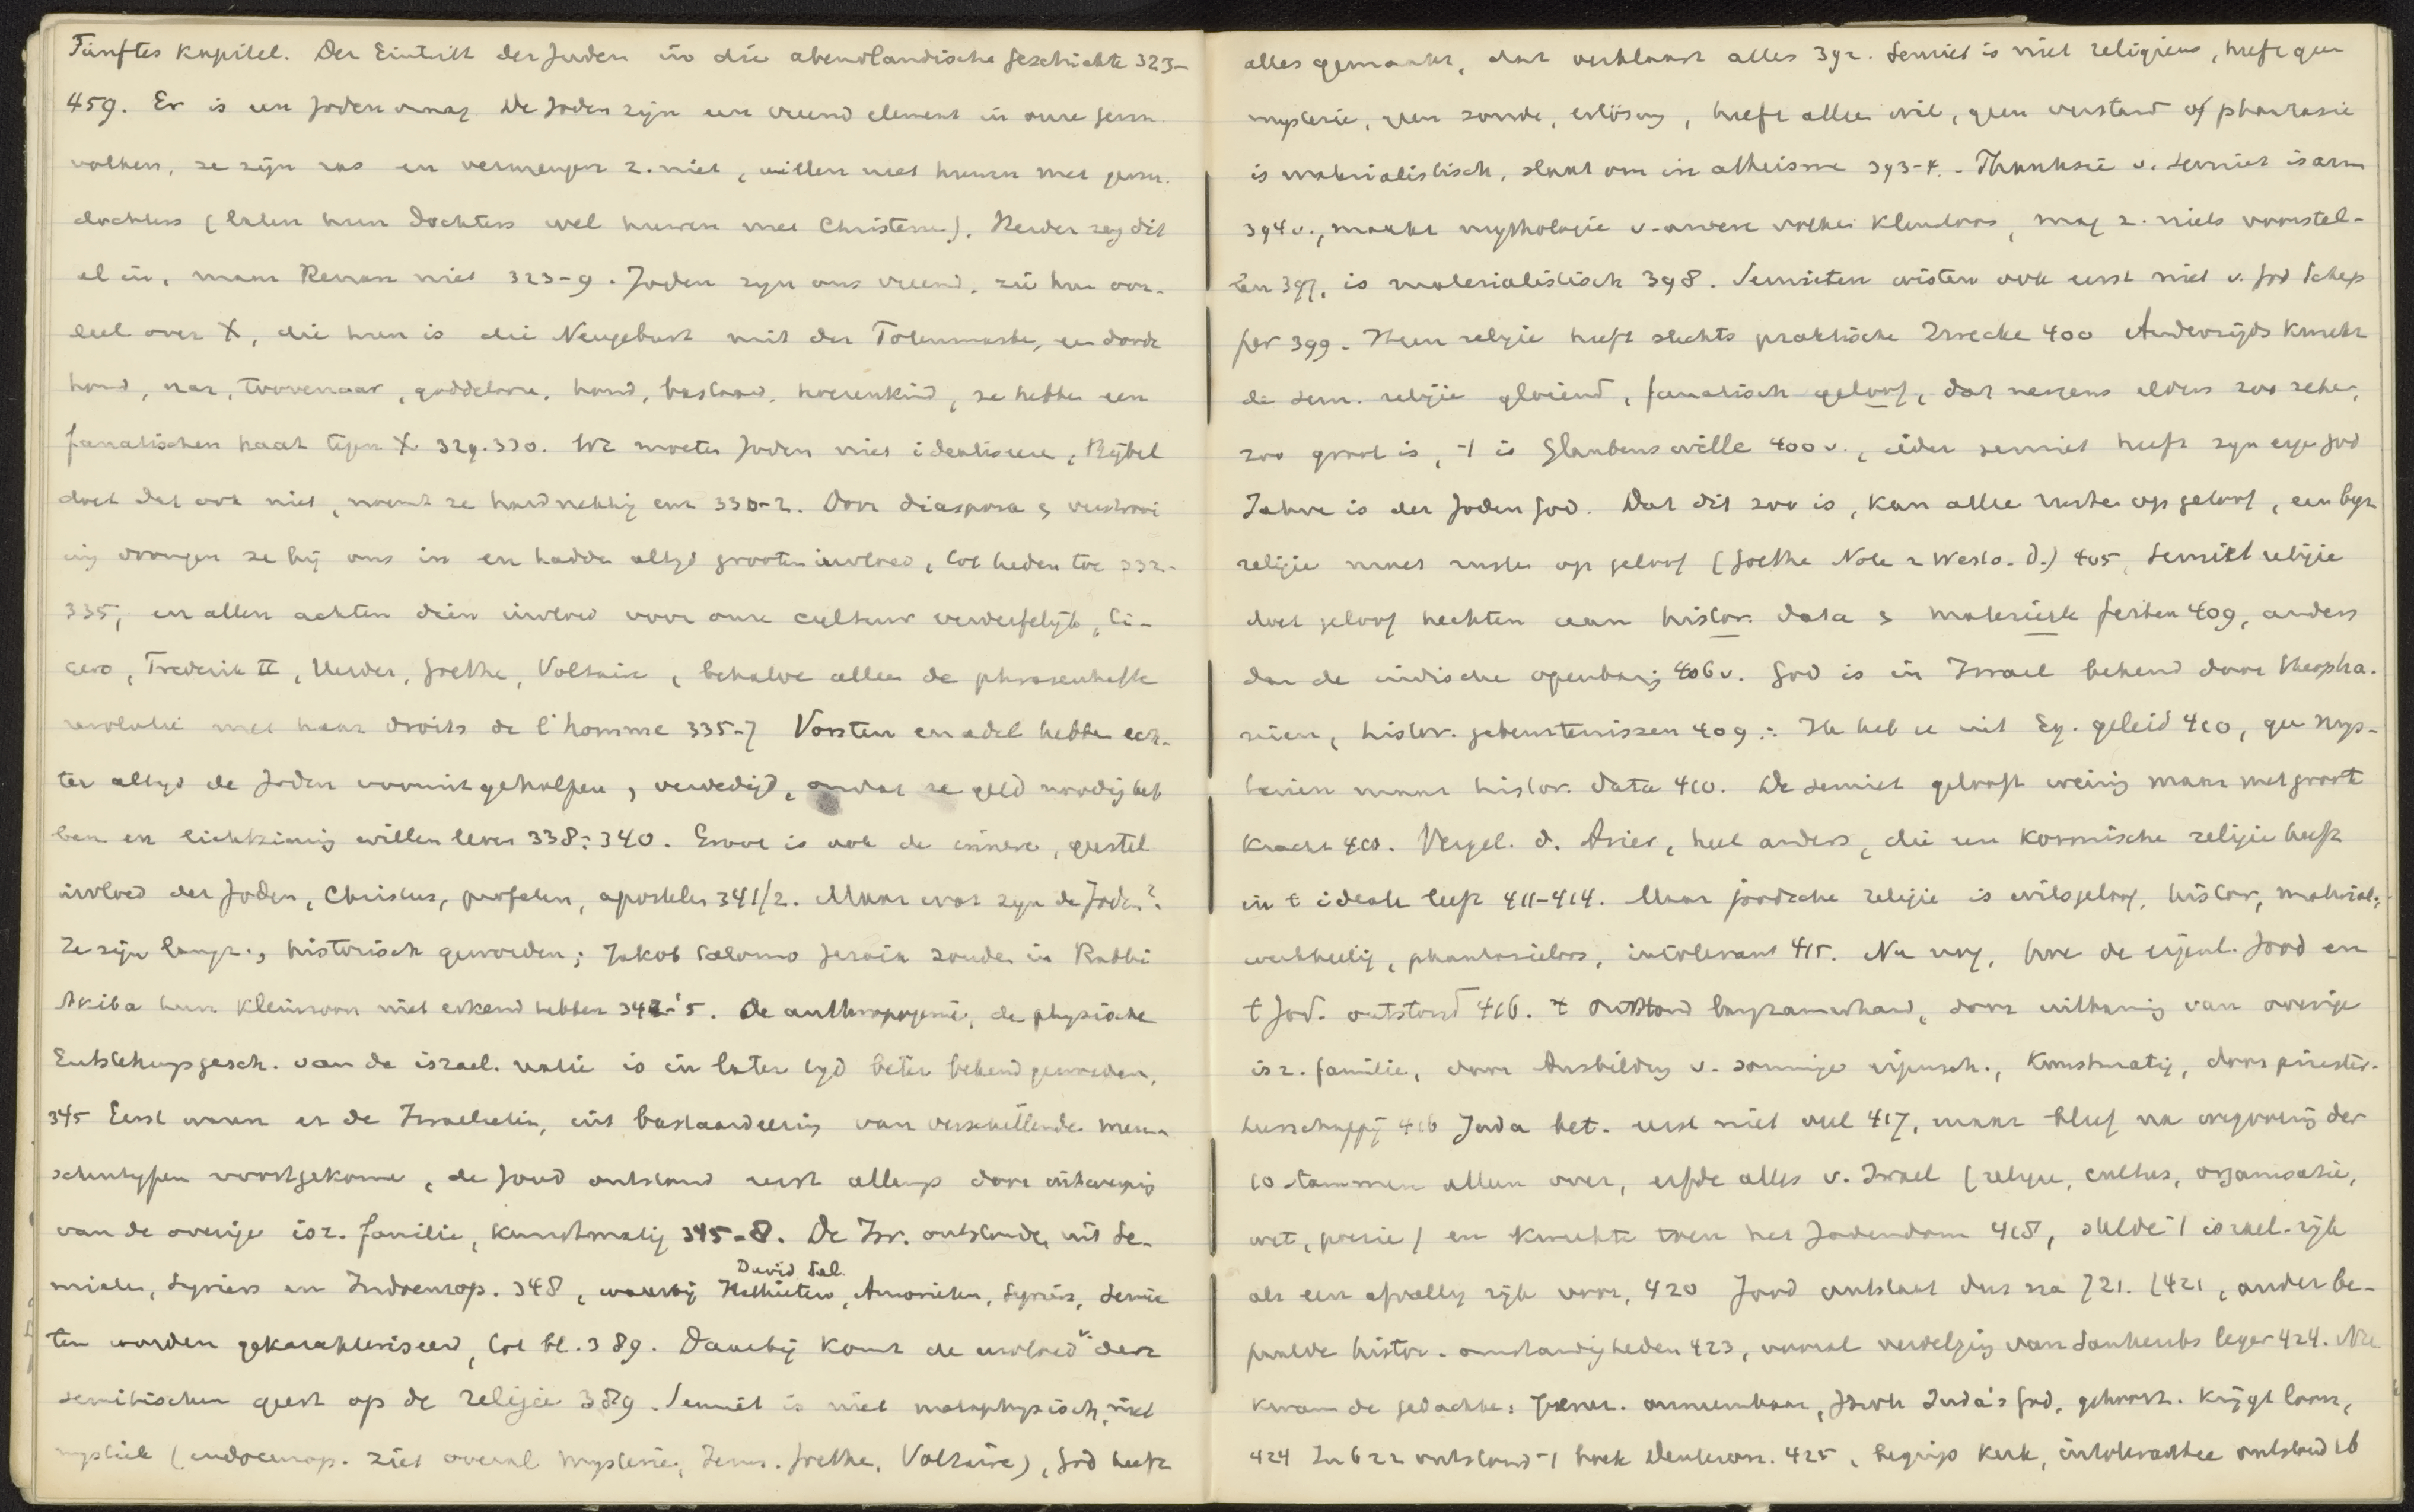 Fünftes Kapitel. Der Eintritt der Juden in die abendländische Geschichte 323-
459. Er is een Joden vraag. De Joden zijn een vreemd element in onze germ.
volken, ze zijn ras en vermengen z. niet, willen niet huwen met germ.
dochters (laten hun dochters wel huwen met Christenen). Herder zag dit
al in, maar Renan niet 323-9. Joden zijn ons vreemd, zie hun oor-
deel over X, die hun is die Neugeburt mit der Totenmaske, een doode
hond, nar, toovenaar, goddelooze, hond, bastaard, hoerenkind, ze hebben een
fanatischen haat tegen X 329.330. We moeten Joden niet idealiseeren, Bijbel
doet dat ook niet, noemt ze hardnekkig enz 330-2. Door diaspora & verstrooi
ing drongen ze bij ons in en hadden altijd grooten invloed, tot heden toe 332-
335, en allen achten dien invloed voor onze cultuur verderfelijk, Ci-
cero, Frederik II, Herder, Goethe, Voltaire, behalve alleen de phrasenhafte
revolutie met haar droits de l'homme 335-7 Vorsten en adel hebben ech-
ter altijd de Joden vooruitgeholpen, verdedigd, omdat ze geld noodig heb
ben en lichtzinnig willen leven 338-340. Groot is ook de innere, geestel
invloed der Joden, Christus, profeten, apostelen 341/2. Maar wat zijn de Joden?
Ze zijn langz., historisch geworden; Jakob Salomo Jesaia zouden in Rabbi
Akiba hun kleinzoon niet erkend hebben 342-5. De anthropogenie, de physische
Entstehungsgesch. van de israel. natie is in later tijd beter bekend geworden.
345 Eerst waren er de Israelieten, uit bastaardeering van verschillende men-
schentypen voortgekomen, de Jood ontstond eerst allengs door
van de overige isr. familie, kunstmatig 345-8. De Isr. ontstonden uit Se-
mieten, Syriers en Indoeurop. 348, waarbij Hethieten, Amorieten, Syriers, Semie
David Sal.
ten worden gekarakteriseerd, tot bl. 389. Daarbij komt de invloed v. den
semitischen geest op de religie 389. Semiet is niet metaphysisch, niet
mystiek (indoeurop. ziet overal mysterie, Goethe, Voltaire), God heeft
alles gemaakt, dat verklaart alles 392. Semiet is niet religieus, heeft geen
mysterie, geen zonde, erlösung, heeft alleen wil, geen verstand of phantasie
is materialistisch, slaat om in atheisme 393-4. - Phantasie v. Semiet is arm
394 v., maakt mythologie v. andere volken kleurloos, mag z. niets voorstel-
len 397, is materialistisch 398. Semieten wisten ook eerst niet v. God Schep
per 399. Hun religie heeft slechts praktische Zwecke 400 Anderzijds kweekt
de sem. religie gloeiend, fanatisch geloof, dat nergens elders zoo zeker,
zoo groot is, 't is Glaubenswille 400 v., ieder semiet heeft zijn eigen God
Jahve is der Joden God. Dat dit zoo is, kan alleen rusten op geloof, een
religie moet rusten op geloof (Goethe Note z West-ö. D.) 405, Semiet religie
doet geloof hechten aan histor. data & materieele feiten 409, anders
dan de indische openbaring 406 v. God is in Israel bekend door theopha-
nieën, histor. gebeurtenissen 409: Ik heb u uit Eg. geleid 410, geen mys-
teriën maar histor. data 410. De Semiet gelooft weinig maar met groote
kracht 410. Vergel. d. Arier, heel anders, die een kosmische religie heeft
in 't ideale leeft 411-414. Maar joodsche religie is wilsgeloof, histor, material.,
werkheilig, phantasieloos, intolerant 415. Nu nog, hoe de eigenl. Jood en
't Jod. ontstond 416. 't Ontstond langzamerhand, door uithuwing van overige
isr. familie, door Ausbildung v. sommige eigensch., kunstmatig, door priester-
heerschappij 416 Juda bet. eerst niet veel 417, maar bleef na wegvoering der
10 stammen alleen over, erfde alles v. Israel (religie, cultus, organisatie,
wet, poesie) en kweekte toen het Jodendom 418, stelde 't israel. rijk
als een afvallig rijk voor, 420 Jood ontstaat dus na 721. (421, onder be-
paalde histor. omstandigheden 423, vooral verdelging van Sanheribs leger 424. Nu
kwam de gedachte: Jeruz. onneembaar, Jhvh Juda's God, gehoorz. krijgt loon,
424 In 622 ontstond 't boek Deuteron. 425, begrip kerk, intolerantie ontstond 426